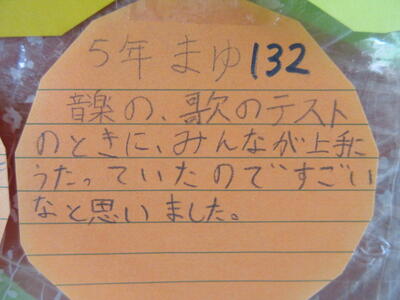 5年 まゆ 132
音楽の、歌のテスト
のときに、みんなが上手に
うたっていたのですごい
なと思いました。